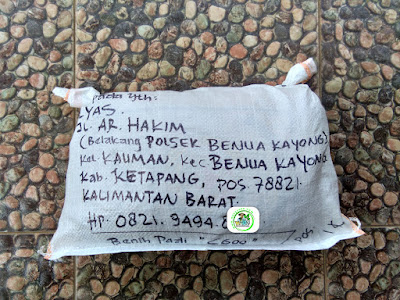 pada Yth:
LYAS.
Jl. AR. HAKIM
(Belakang POLSEK BENUA KAYONG)
Kel. KAUMAN, Kec BENUA KAYONG
Kab. KETAPANG, POS. 78821.
KALIMANTAN BARAT
HP. 0821. 9494.8
Benih Padi